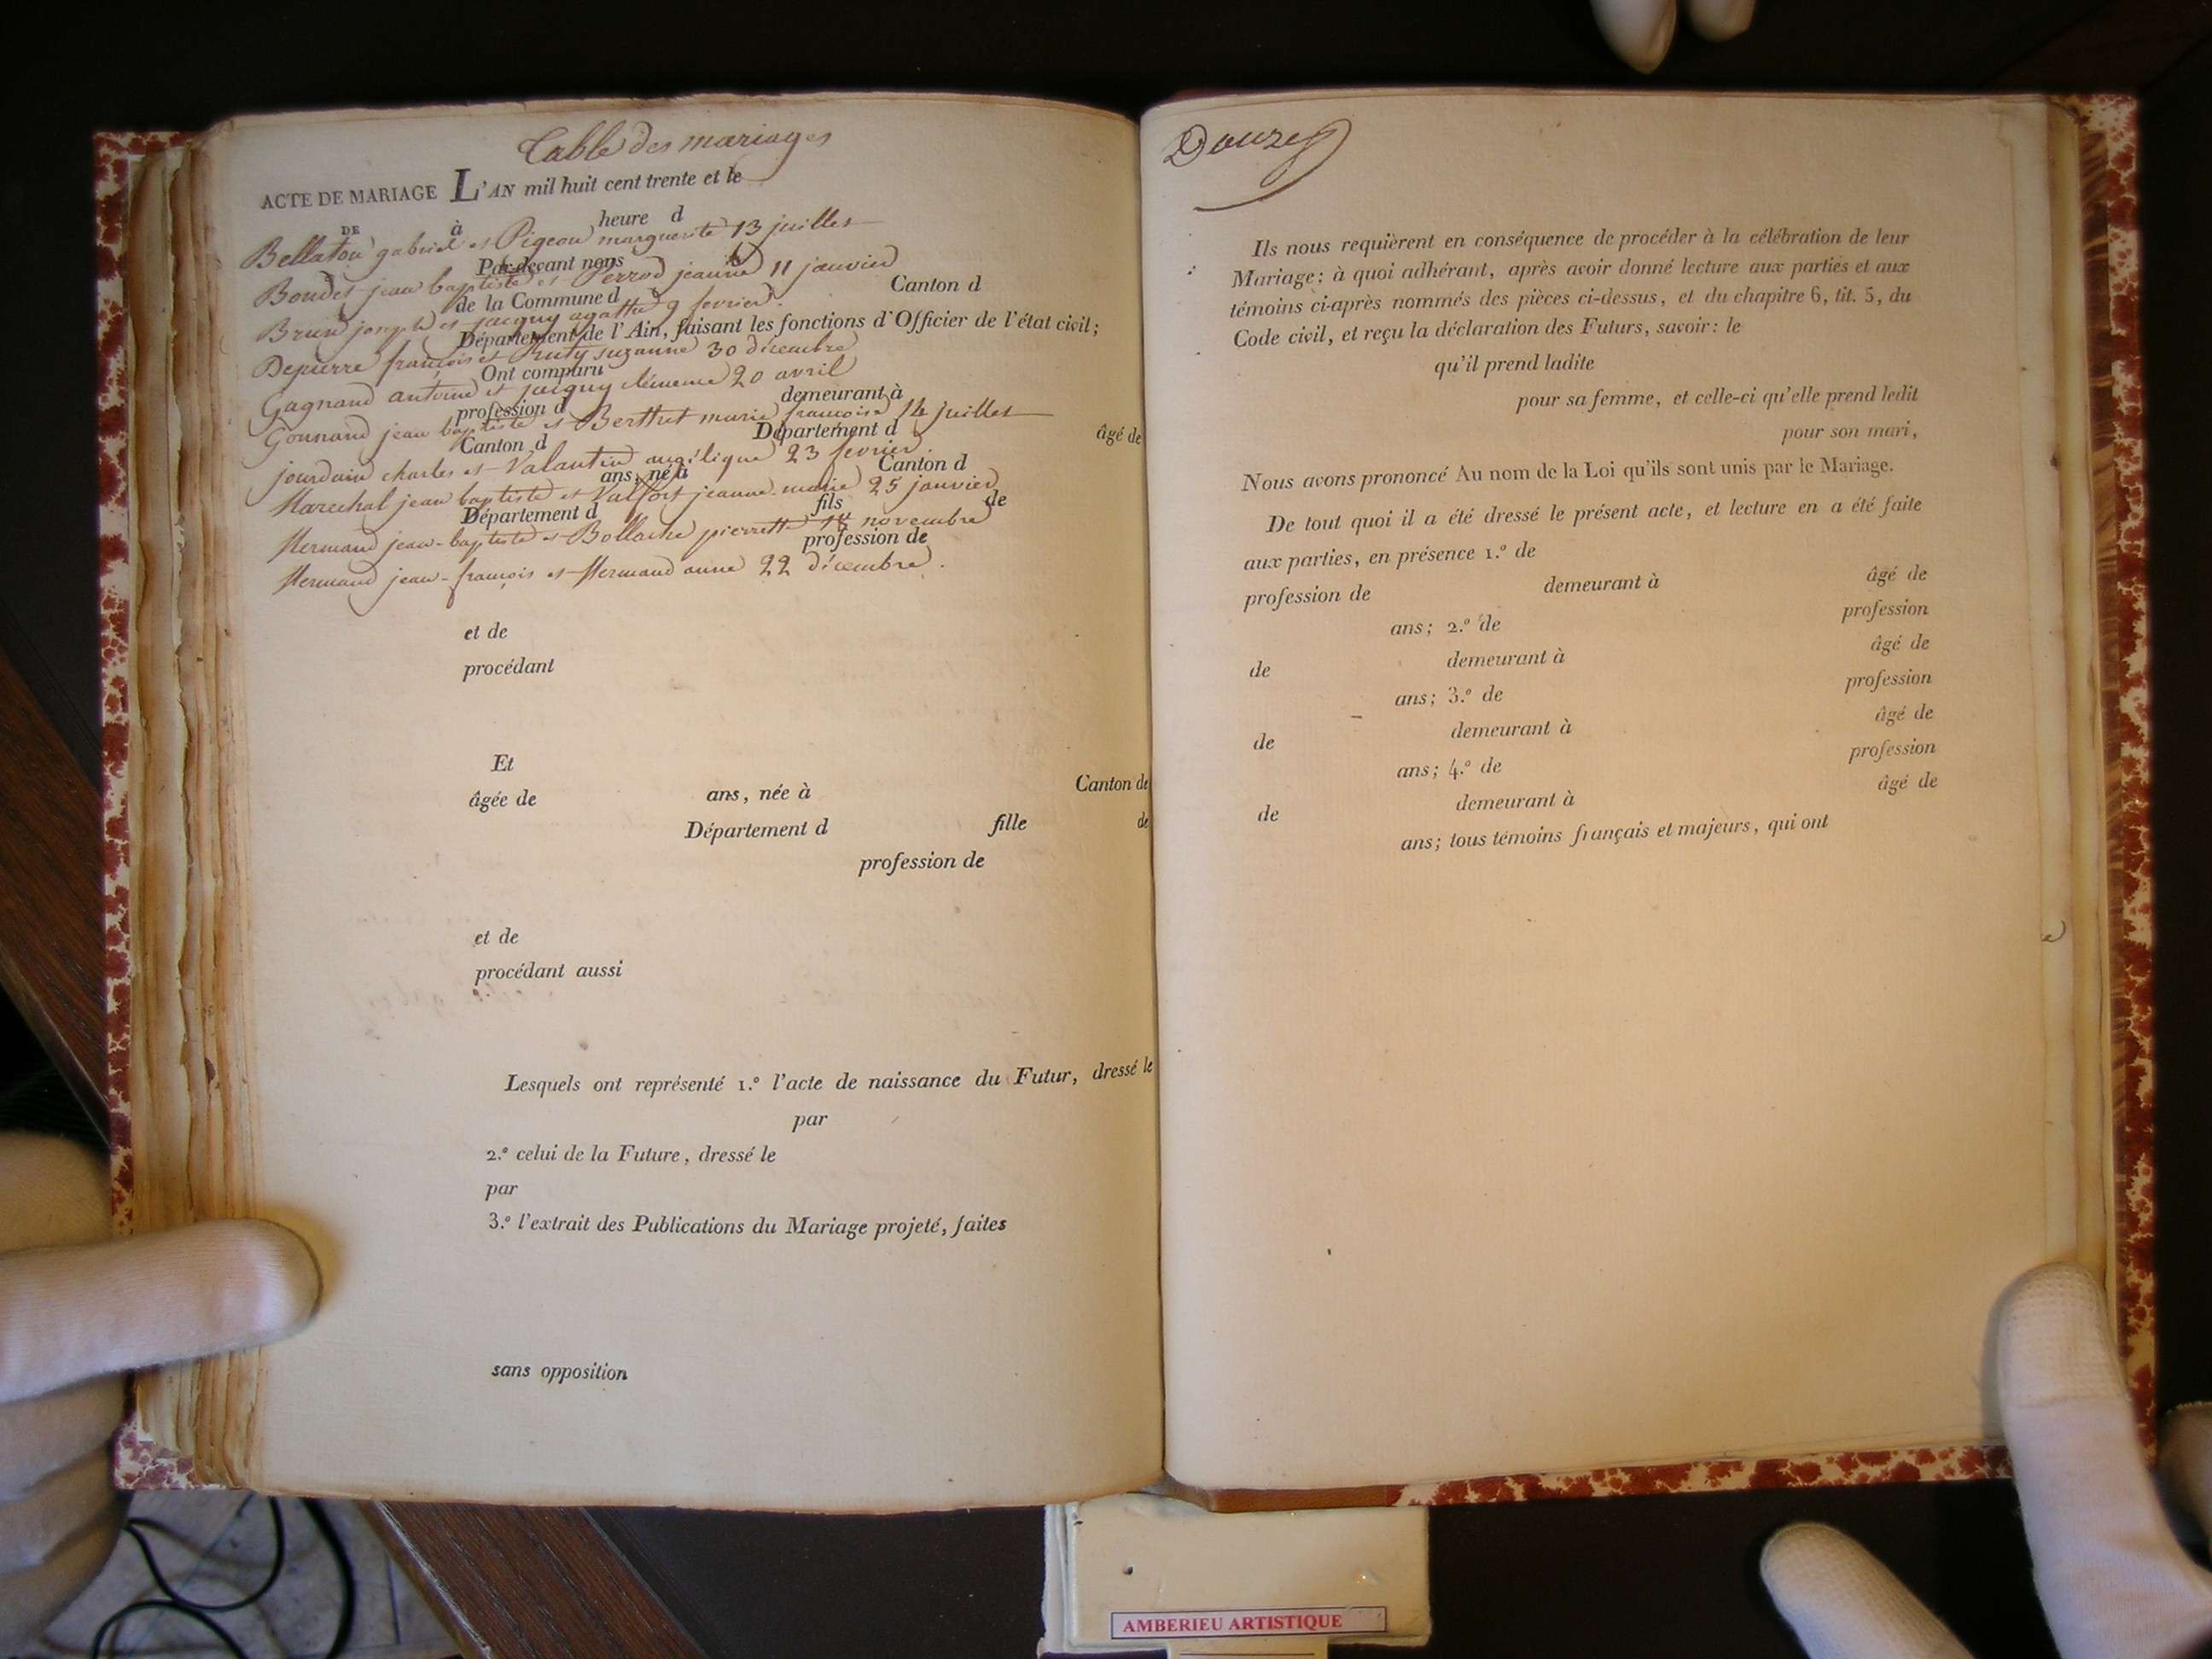 Table des mariages
ACTE DE MARIAGE L'AN mil huit cent trente et le
DE à heure d
Bellaton gabriel et Pigeon marguerite 13 juillet
Par-devant nous
Boudet jean baptiste et Perrod jeanne 11 janvier
de la Commune d Canton d
Brun joseph et jacquy agathe 9 fevrier.
Département de l'Ain, faisant les fonctions d'Officier de l'état civil;
Depierre françois et Ruty suzanne 30 décembre
Ont comparu
Gagnand antoine et 20 avril
profession d demeurant à
Gonnand jean baptiste et Berthet marie françoise 14 juillet
Canton d Département d âgé de
jourdain charles et Valantin angélique 23 fevrier.
ans, né à Canton d
Marechal jean baptiste et Valfort jeanne-marie 25 janvier
Département d fils de
Mermand jean-baptiste et Bollache pierrette novembre
profession de
Mermand jean-françois et Mermand anne 22 décembre.
et de
procédant
Et
âgée de ans, née à Canton de
Département d fille de
profession de
et de
procédant aussi
Lesquels ont représenté 1.º l'acte de naissance du Futur, dressé le
par
2.º celui de la Future, dressé le
par
3.º l'extrait des Publications du Mariage projeté, faites
sans opposition
Douze
Ils nous requièrent en conséquence de procéder à la célébration de leur
Mariage; à quoi adhérant, après avoir donné lecture aux parties et aux
témoins ci-après nommés des pièces ci-dessus, et du chapitre 6, tit. 5, du
Code civil, et reçu la déclaration des Futurs, savoir: le
qu'il prend ladite
pour sa femme, et celle-ci qu'elle prend ledit
pour son mari,
Nous avons prononcé Au nom de la Loi qu'ils sont unis par le Mariage.
De tout quoi il a été dressé le présent acte, et lecture en a été faite
aux parties, en présence 1.º de
profession de demeurant à âgé de
ans; 2.º de profession
de demeurant à âgé de
ans; 3.º de profession
de demeurant à âgé de
ans; 4.º de profession
de demeurant à âgé de
ans; tous témoins français et majeurs, qui ont
AMBERIEU ARTISTIQUE